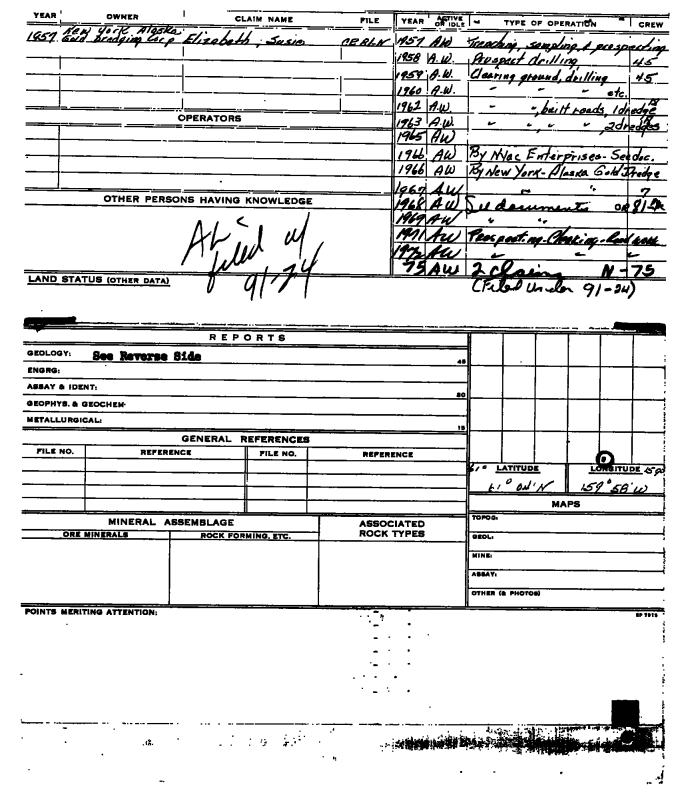 YEAR OWNER CLAIM NAME FILE YEAR ACTIVE OR IDLE TYPE OF OPERATION CREW
1957 New York Alaska Gold Dredging Corp Elizabeth, Susie 1957 AW Trenching, sampling & prospecting
1958 A.W. Prospect drilling 45
1959 A.W. Clearing ground, drilling 45
1960 A.W. " " etc.
1962 A.W. " ", built roads, 1 dredge
OPERATORS
1963 A.W. " ", " 2 dredges
1965 AW
1966 AW By Nyac Enterprises - See doc.
1966 AW By New York-Alaska Gold Dredge
1967 AW " " 7
OTHER PERSONS HAVING KNOWLEDGE
1968 AW See documents OR 81
1969 AW " "
filed w/
91-24
1971 AW Prospecting
1972 AW " "
75 AW 2 N-75
LAND STATUS (OTHER DATA)
(Filed under 91-24)
REPORTS
GEOLOGY: See Reverse Side 45
ENGRG:
ASSAY & IDENT: 80
GEOPHYS. & GEOCHEM.
METALLURGICAL: 15
GENERAL REFERENCES
FILE NO. REFERENCE FILE NO. REFERENCE
61° LATITUDE LONGITUDE
61° 04'N 159° 58'W
MAPS
MINERAL ASSEMBLAGE ASSOCIATED ROCK TYPES
ORE MINERALS ROCK FORMING, ETC.
TOPOG:
GEOL:
MINE:
ASSAY:
OTHER (& PHOTOS)
POINTS MERITING ATTENTION: